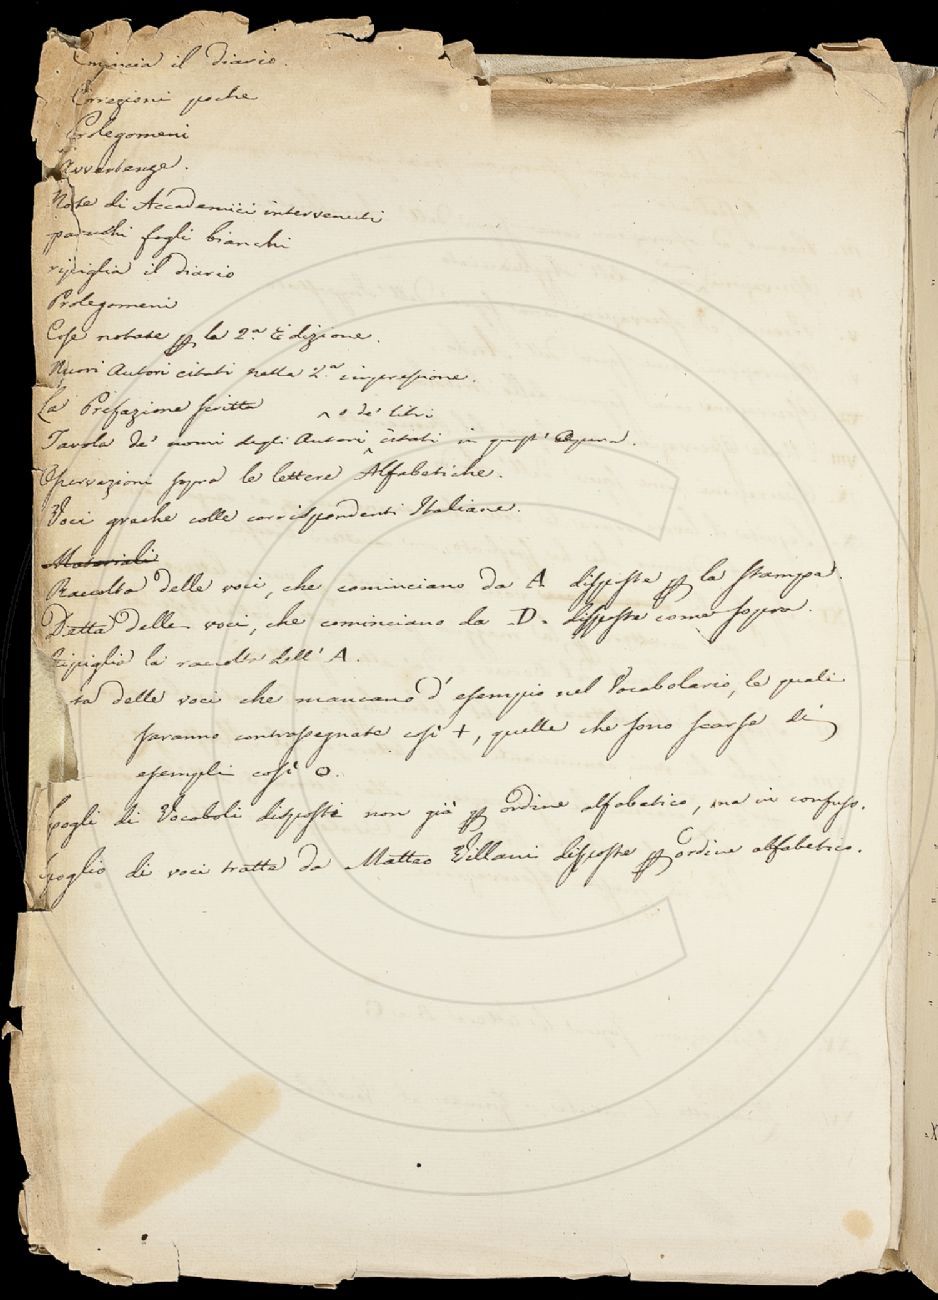 omincia il diario.
Correzioni poche
Prolegomeni
Avvertenze.
Note di Accademici intervenuti
parecchi fogli bianchi
ripiglia il diario
Prolegomeni
Cose notate p la 2.ª Edizione.
Nuovi Autori citati nella 2.ª impressione.
La Prefazione scritta
^ o de' libri
Tavola de' nomi degli Autori ^ citati in quest' Opera.
Osservazioni sopra le lettere Alfabetiche.
Voci greche colle corrispondenti Italiane.
Materiali
Raccolta delle voci, che cominciano da A disposte p la stampa.
Detta delle voci, che cominciano da D. disposte come sopra.
Ripiglia la raccolta dell' A.
ta delle voci che mancano d' esempio nel Vocabolario, le quali
saranno contrassegnate così +, quelle che sono scarse di
esempli così o.
Spogli di Vocaboli disposti non già p ordine alfabetico, ma in confuso.
Spoglio di voci tratte da Matteo Villani disposte p ordine alfabetico.